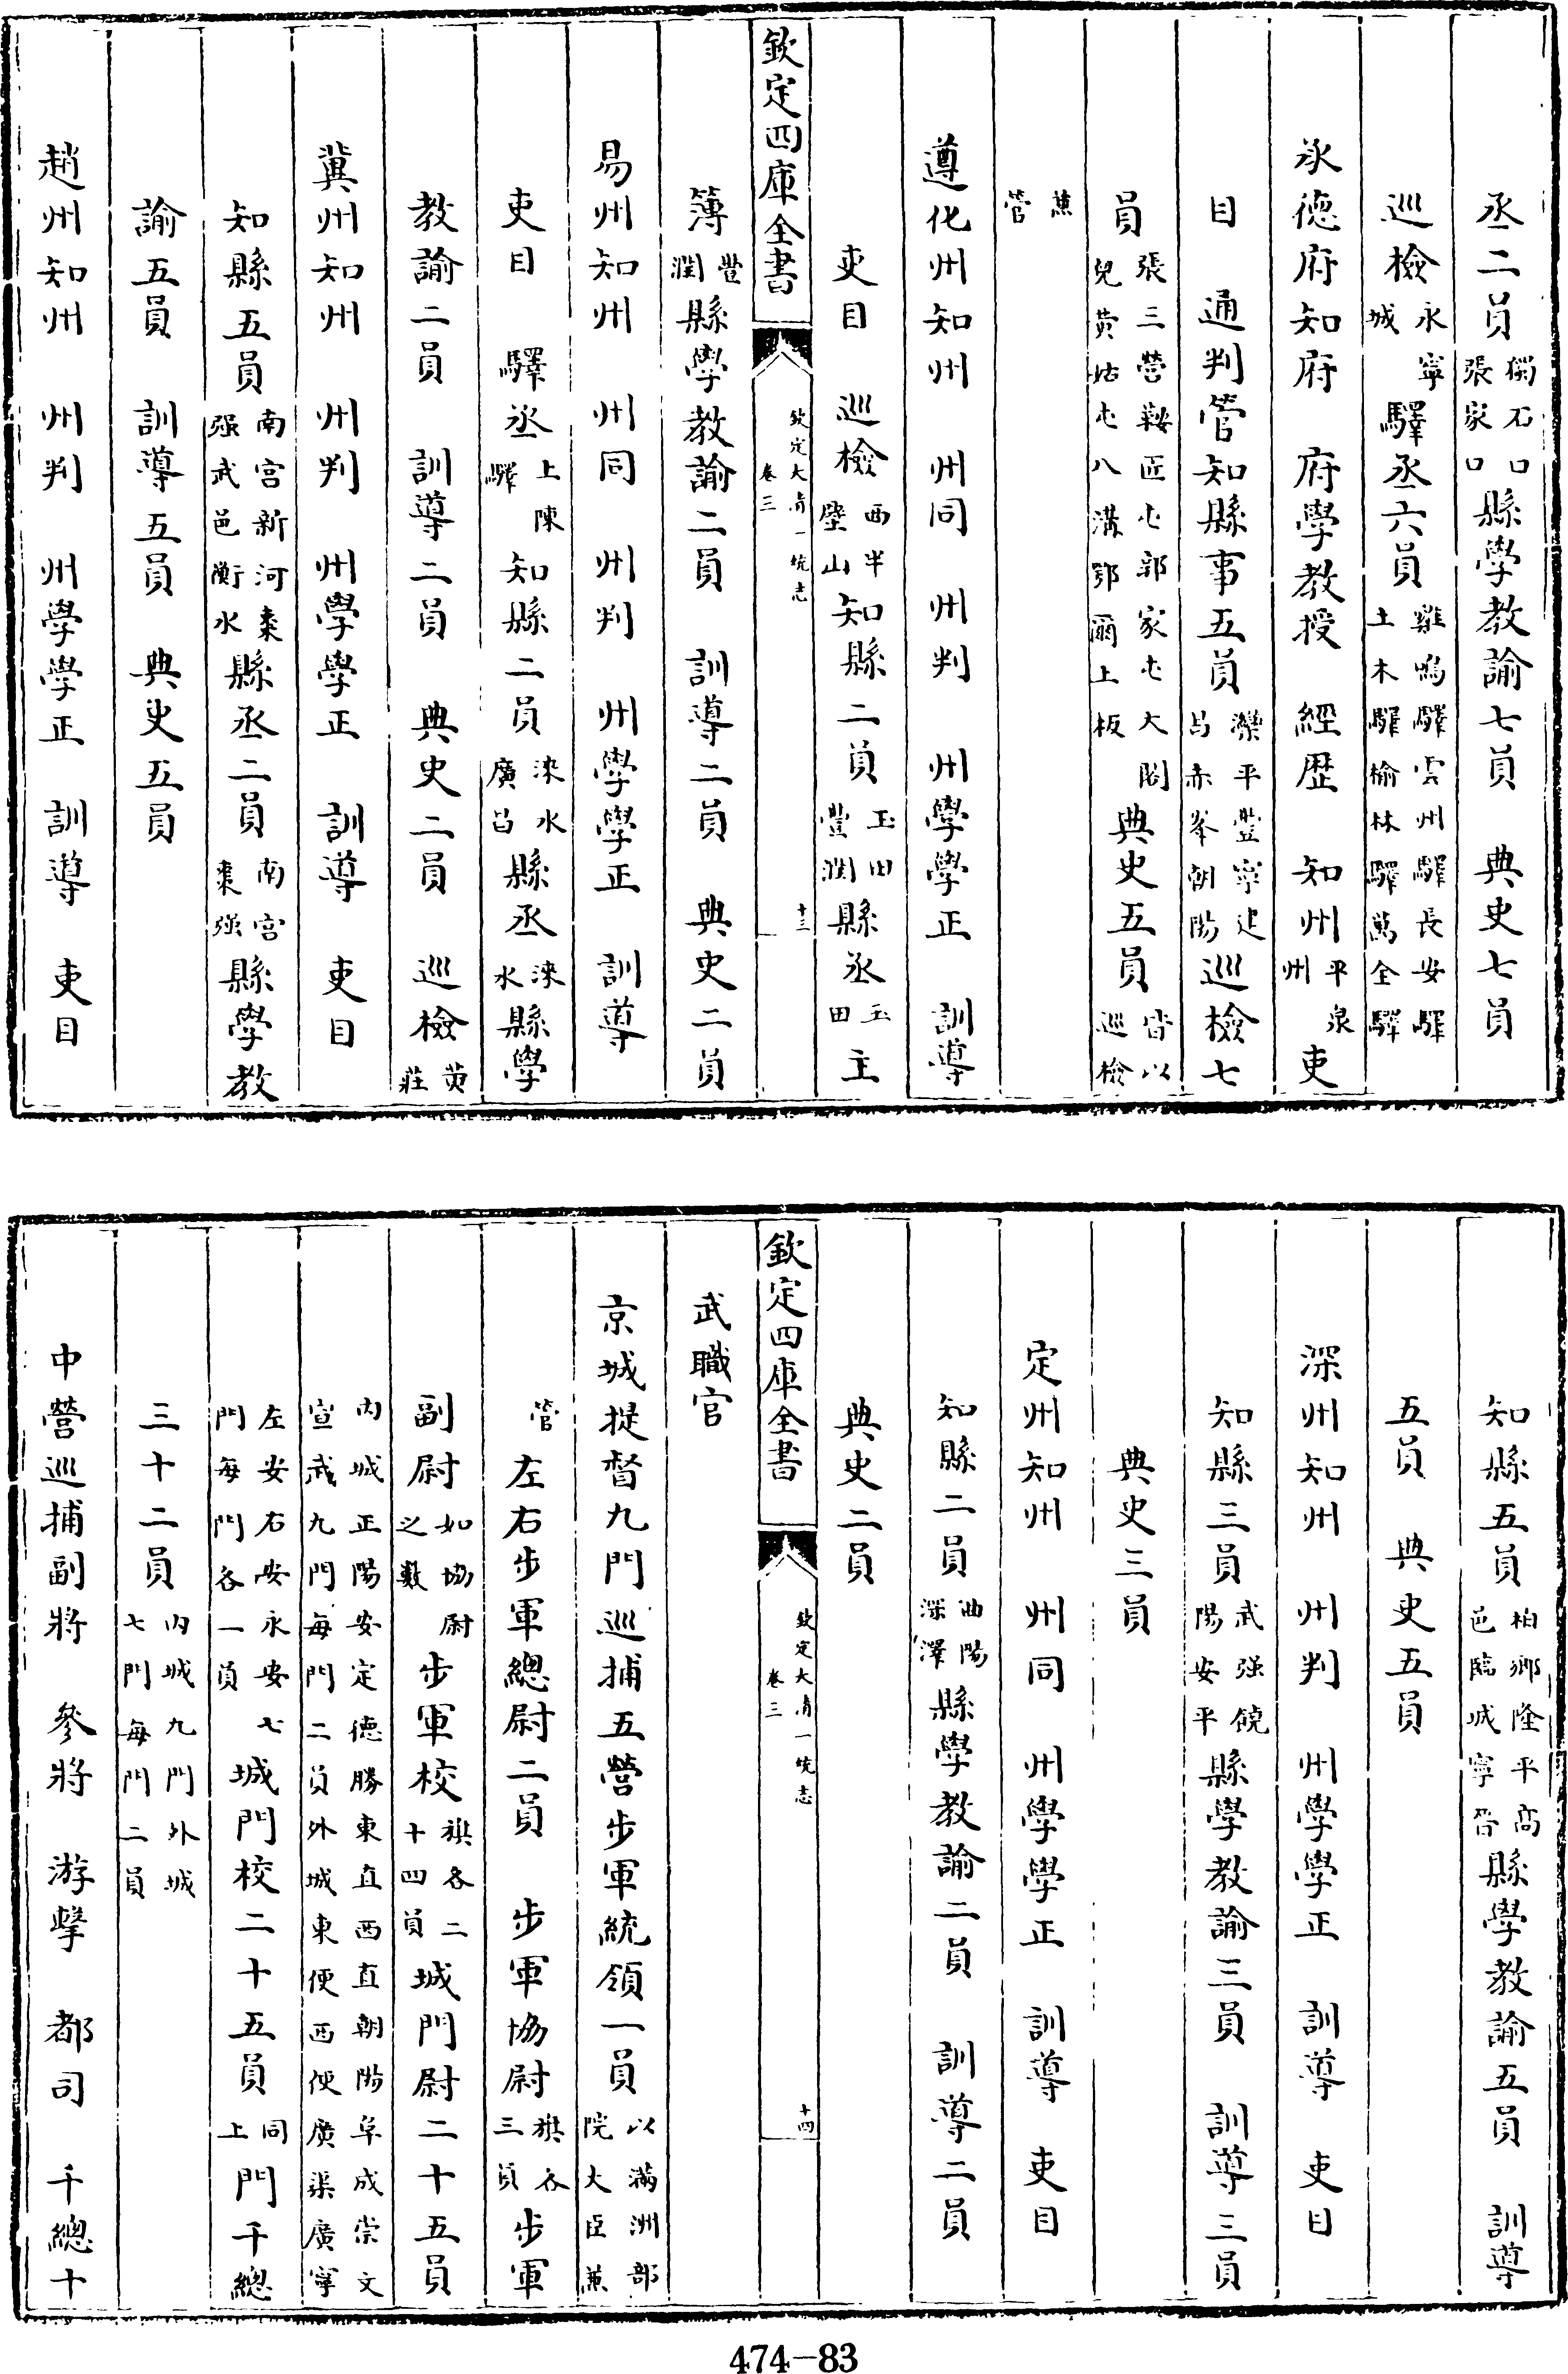 丞二員獨石口張家口縣學教諭七員　典史七員
巡檢永寧城驛丞六員雞鳴驛雲州驛長安驛土木驛榆林驛萬全驛
承德府知府　府學教授　經歴　知州平泉州吏
目　通判管知縣事五員灤平豐寧建昌赤峯朝陽巡檢七
員張三營鞍匠屯郭家屯大閣兒黄姑屯八溝鄂爾土板典史五員皆以巡檢
兼管
遵化州知州　州同　州判　州學學正　訓導
吏目　巡檢西半壁山知縣二員玉田豐潤縣丞玉田主
欽定四庫全書
欽定大清一統志
卷三
十三
簿豐潤縣學教諭二員　訓導二員　典史二員
易州知州　州同　州判　州學學正　訓導
吏目　驛丞上陳驛知縣二員淶水廣昌縣丞淶水縣學
教諭二員　訓導二員　典史二員　巡檢黄莊
冀州知州　州判　州學學正　訓導　吏目
知縣五員南宫新河棗强武邑衡水縣丞二員南宫棗强縣學教
諭五員　訓導五員　典史五員
趙州知州　州判　州學學正　訓導　吏目
知縣五員柏鄉隆平高邑臨城寧晉縣學教諭五員　訓導
五員　典史五員
深州知州　州判　州學學正　訓導　吏目
知縣三員武强饒陽安平縣學教諭三員　訓導三員
典史三員
定州知州　州同　州學學正　訓導　吏目
知縣二員曲陽深澤縣學教諭二員　訓導二員
典史二員
欽定四庫全書
欽定大清一統志
卷三
十四
武職官
京城提督九門巡捕五營步軍統領一員以滿洲部院大臣兼
管左右步軍總尉二員　步軍協尉旗各三員步軍
副尉如協尉之數步軍校旗各二十四員城門尉二十五員
内城正陽安定德勝東直西直朝陽阜成崇文宣武九門每門二員外城東便西便廣渠廣寧
左安右安永安七門每門各一員城門校二十五員同上門千總
三十二員内城九門外城七門每門二員
中營巡捕副將　參將　游擊　都司　千總十
474-83